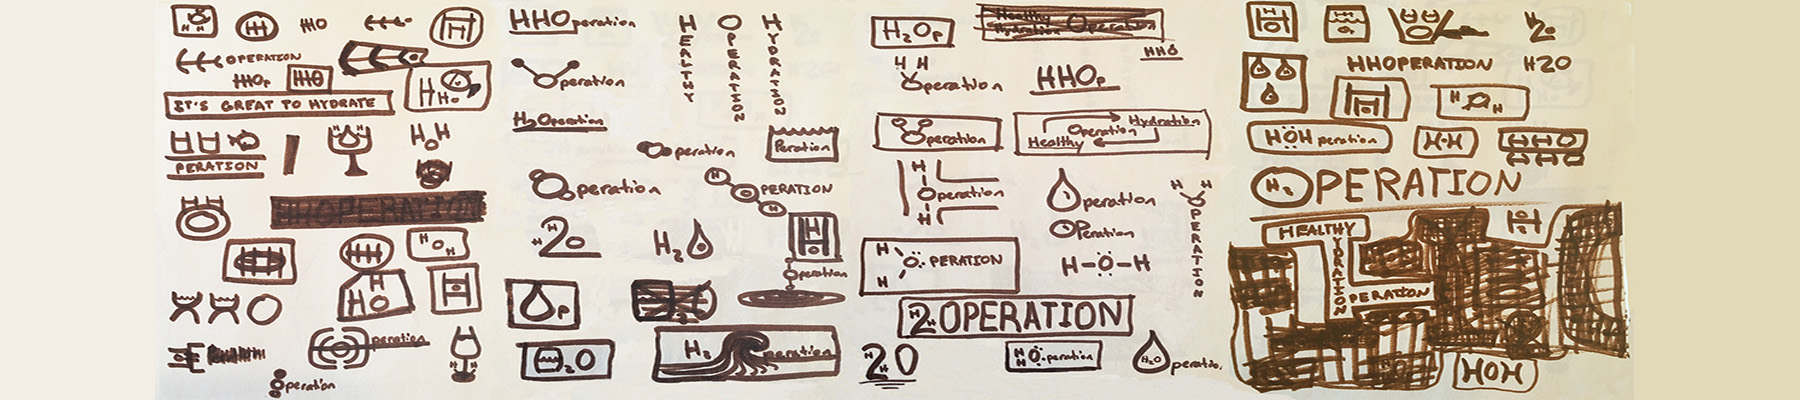 HHO
OPERATION
HHOp
HHO
HHo
IT'S GREAT TO HYDRATE
HOH
PERATION
HHOPERATION
HOH
H HO
peration
peration
HHOperation
HEALTHY
OPERATION
HYDRATION
peration
H2Operation
peration
Peration
peration
PERATION
H2O
H2
peration
P
2O
H2 peration
H2Op
Healthy
Hydration Operation
HHO
HH
Operation
HHOp
peration
Hydration
Operation
Healthy
H
Operation
H
peration
OPeration
HH
OPERATION
H
PERATION
H
H-Ö-H
H2OPERATION
H2O
HHÖ-peration
H2O
peration
H2O
HHOPERATION H2O
HOH
HÖH peration
H·H
HHO
HHO
H2OPERATION
HEALTHY
HYDRATION
OPERATION
HOH